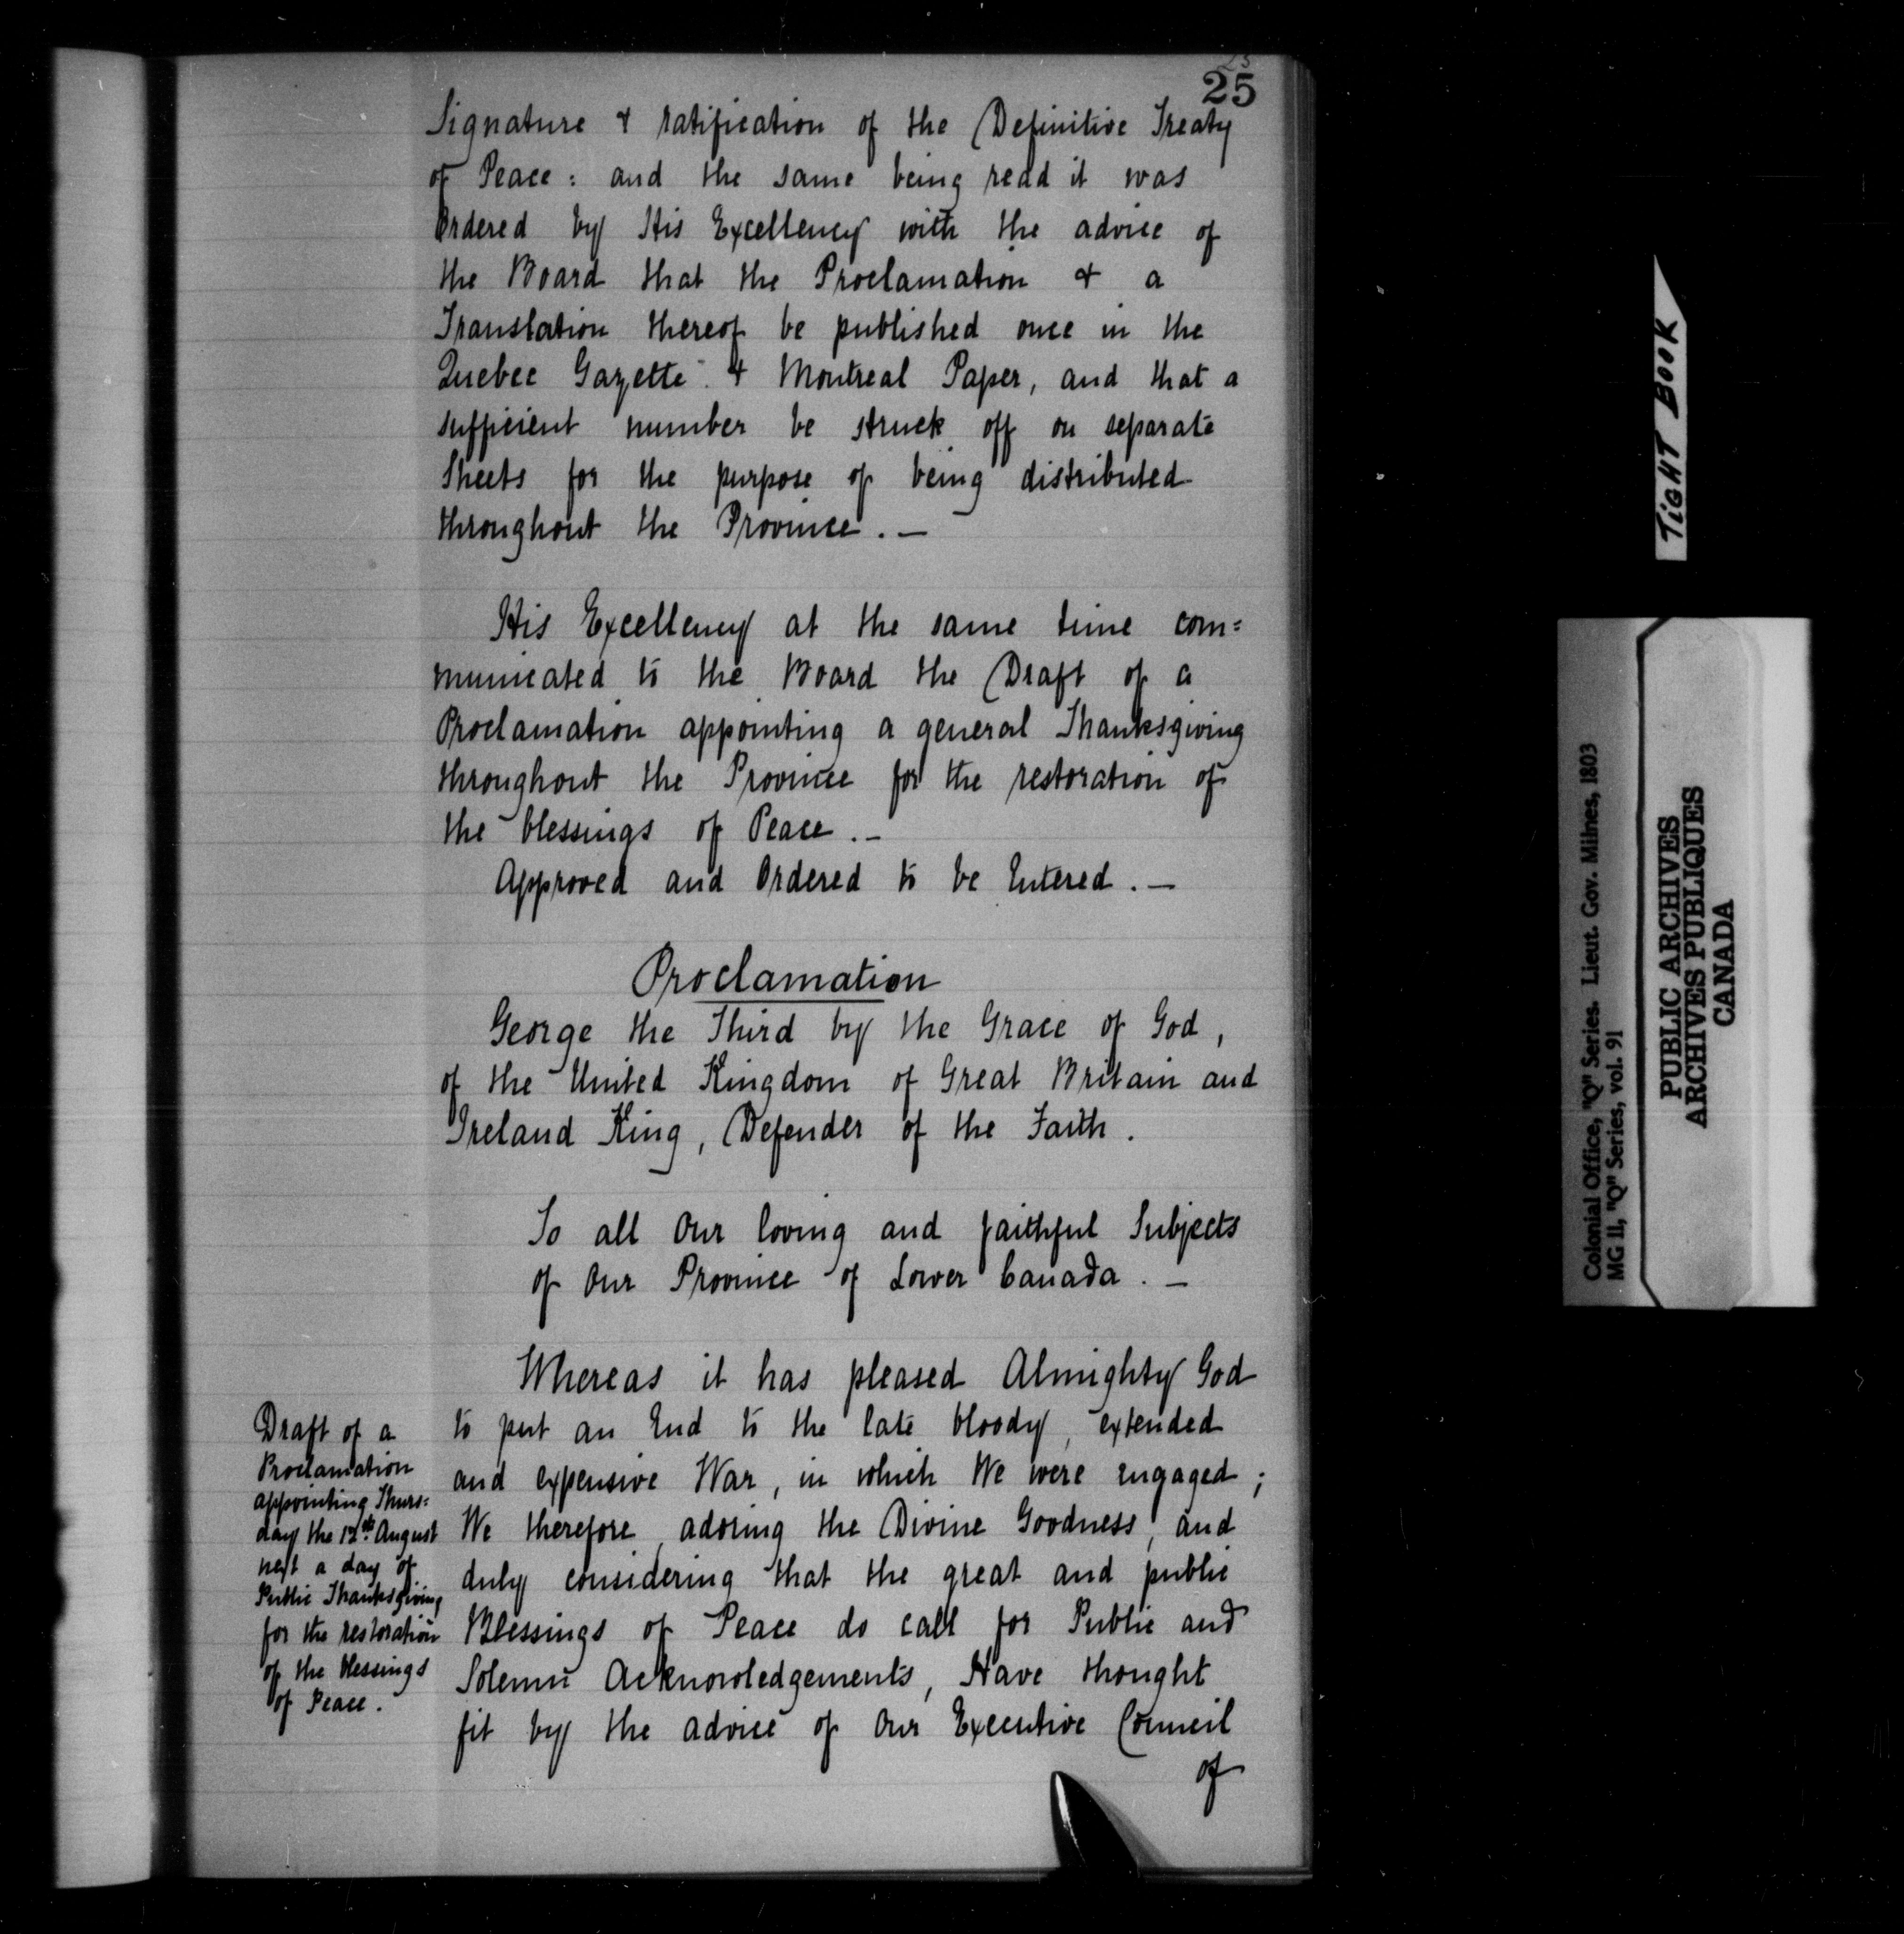 25
25
Signature & ratification of the Definitive Treaty
of Peace: and the same being read it was
Ordered by His Excellency with the advice of
the Board that the Proclamation & a
Translation thereof be published once in the
Quebec Gazette & Montreal Paper, and that a
sufficient number be struck off on separate
Sheets for the purpose of being distributed
throughout the Province.—
His Excellency at the same time com=
municated to the Board the Draft of a
Proclamation appointing a general Thanksgiving
throughout the Province for the restoration of
the blessings of Peace.—
Approved and Ordered to be Entered.—
Proclamation
George the Third by the Grace of God,
of the United Kingdom of Great Britain and
Ireland King, Defender of the Faith.
To all Our loving and faithful Subjects
of Our Province of Lower Canada.—
Whereas it has pleased Almighty God
to put an End to the late bloody, extended
and expensive War, in which We were engaged;
We therefore, adoring the Divine Goodness, and
duly considering that the great and public
Blessings of Peace do call for Public and
Solemn Acknowledgements, Have thought
fit by the advice of Our Executive Council
of
Draft of a
Proclamation
appointing Thurs=
day the 12th August
next a day of
Public Thanksgiving
for the restoration
of the blessings
of Peace.
TIGHT BOOK
Colonial Office, "Q" Series. Lieut. Gov. Milnes, 1803
MG 11, "Q" Series, vol. 91
PUBLIC ARCHIVES
ARCHIVES PUBLIQUES
CANADA